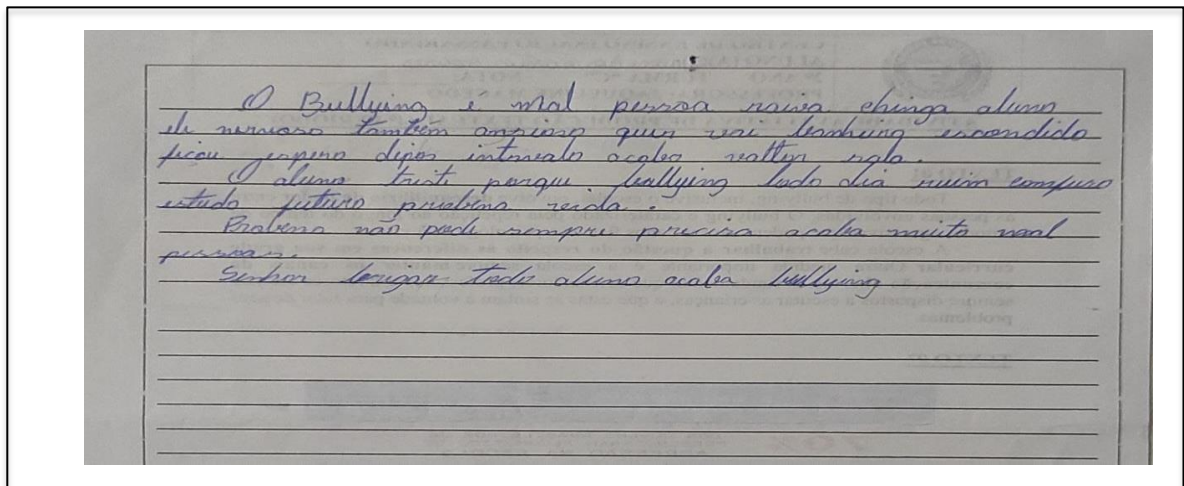 O Bullying e mal pessoa raiva chinga aluno
ele nervoso também ansioso quer vai banheiro escondido
ficou espero dipos intervalo acaba voltar sala.
O aluno triste porque bullying todo dia ruim confuso
estudo futuro problema vida.
Problema não pode sempre precisa acaba muito mal
pessoas.
Senhor todo aluno acaba bullying